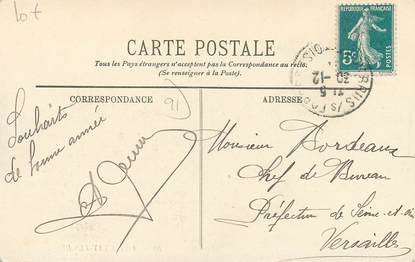 lot
CARTE POSTALE
Tous les Pays étrangers n'acceptent pas la Correspondance au recto.
(Se renseigner à la Poste).
CORRESPONDANCE
ADRESSE
REPUBLIQUE FRANÇAISE
5c
POSTES
91
5
30-12
Souhaits
de bonne année
Monsieur Bordeaux
Chef de Bureau
Préfecture de Seine-et-Oise
Versailles